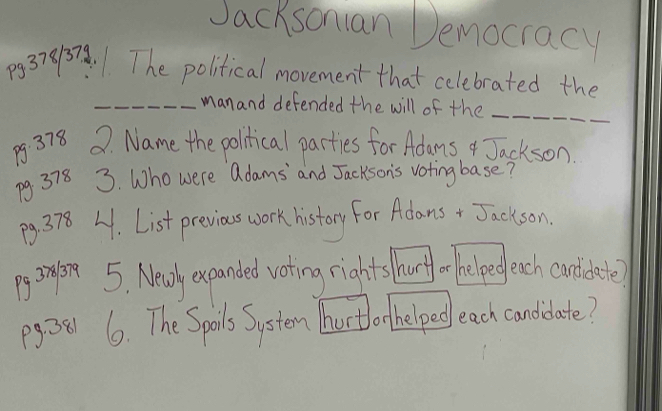 Jacksonian Democracy
pg 378/379. 1. The political movement that celebrated the
______ man and defended the will of the ______
pg. 378 2. Name the political parties for Adams & Jackson.
pg. 378 3. Who were Adams' and Jackson's voting base?
pg. 378 4. List previous work history for Adams + Jackson.
pg 378/379 5. Newly expanded voting rights hurt or helped each candidate?
pg. 381 6. The Spoils System hurt or helped each candidate?